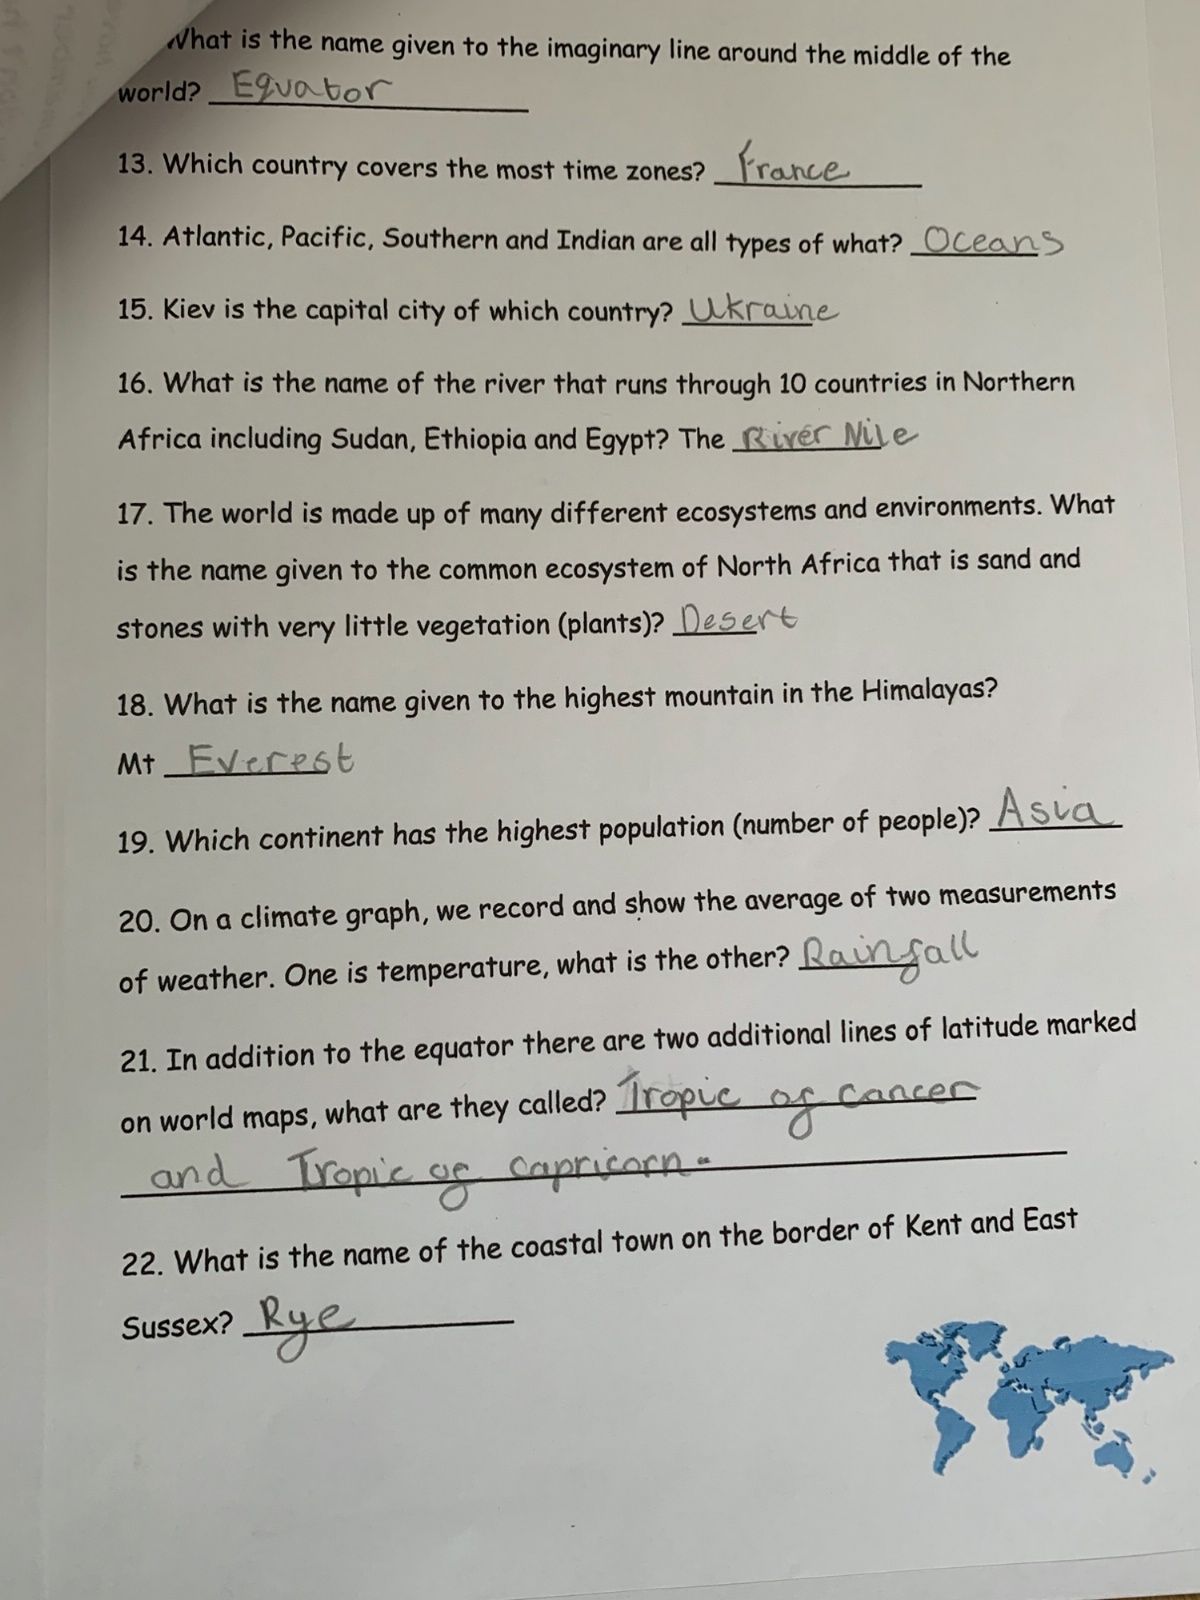 What is the name given to the imaginary line around the middle of the
world? Equator
13. Which country covers the most time zones? France
14. Atlantic, Pacific, Southern and Indian are all types of what? Oceans
15. Kiev is the capital city of which country? Ukraine
16. What is the name of the river that runs through 10 countries in Northern
Africa including Sudan, Ethiopia and Egypt? The River Nile
17. The world is made up of many different ecosystems and environments. What
is the name given to the common ecosystem of North Africa that is sand and
stones with very little vegetation (plants)? Desert
18. What is the name given to the highest mountain in the Himalayas?
Mt Everest
19. Which continent has the highest population (number of people)? Asia
20. On a climate graph, we record and show the average of two measurements
of weather. One is temperature, what is the other? Rainfall
21. In addition to the equator there are two additional lines of latitude marked
on world maps, what are they called? Tropic of cancer
and Tropic of capricorn.
22. What is the name of the coastal town on the border of Kent and East
Sussex? Rye